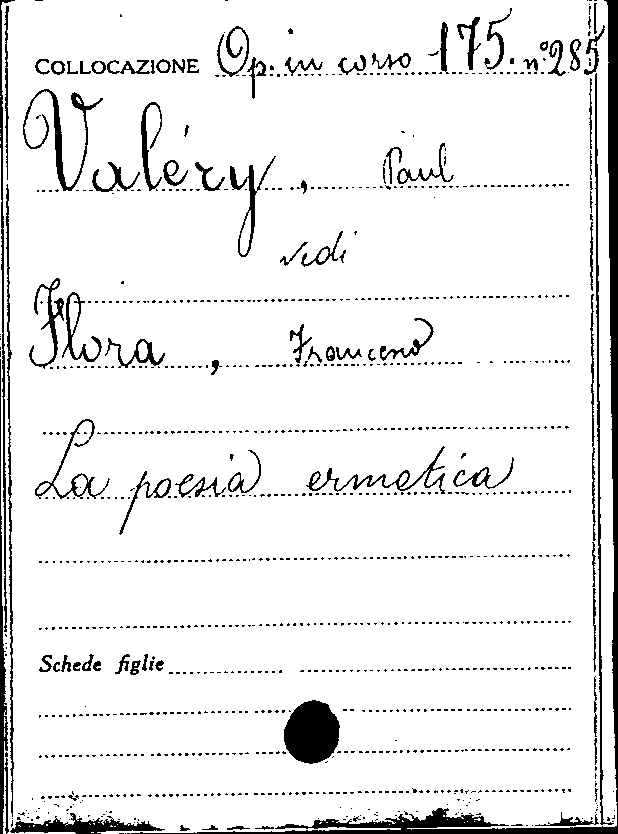 COLLOCAZIONE Op. in corso 175. n° 285
Valéry, Paul
vedi
Flora, Francesco
La poesia ermetica
Schede figlie